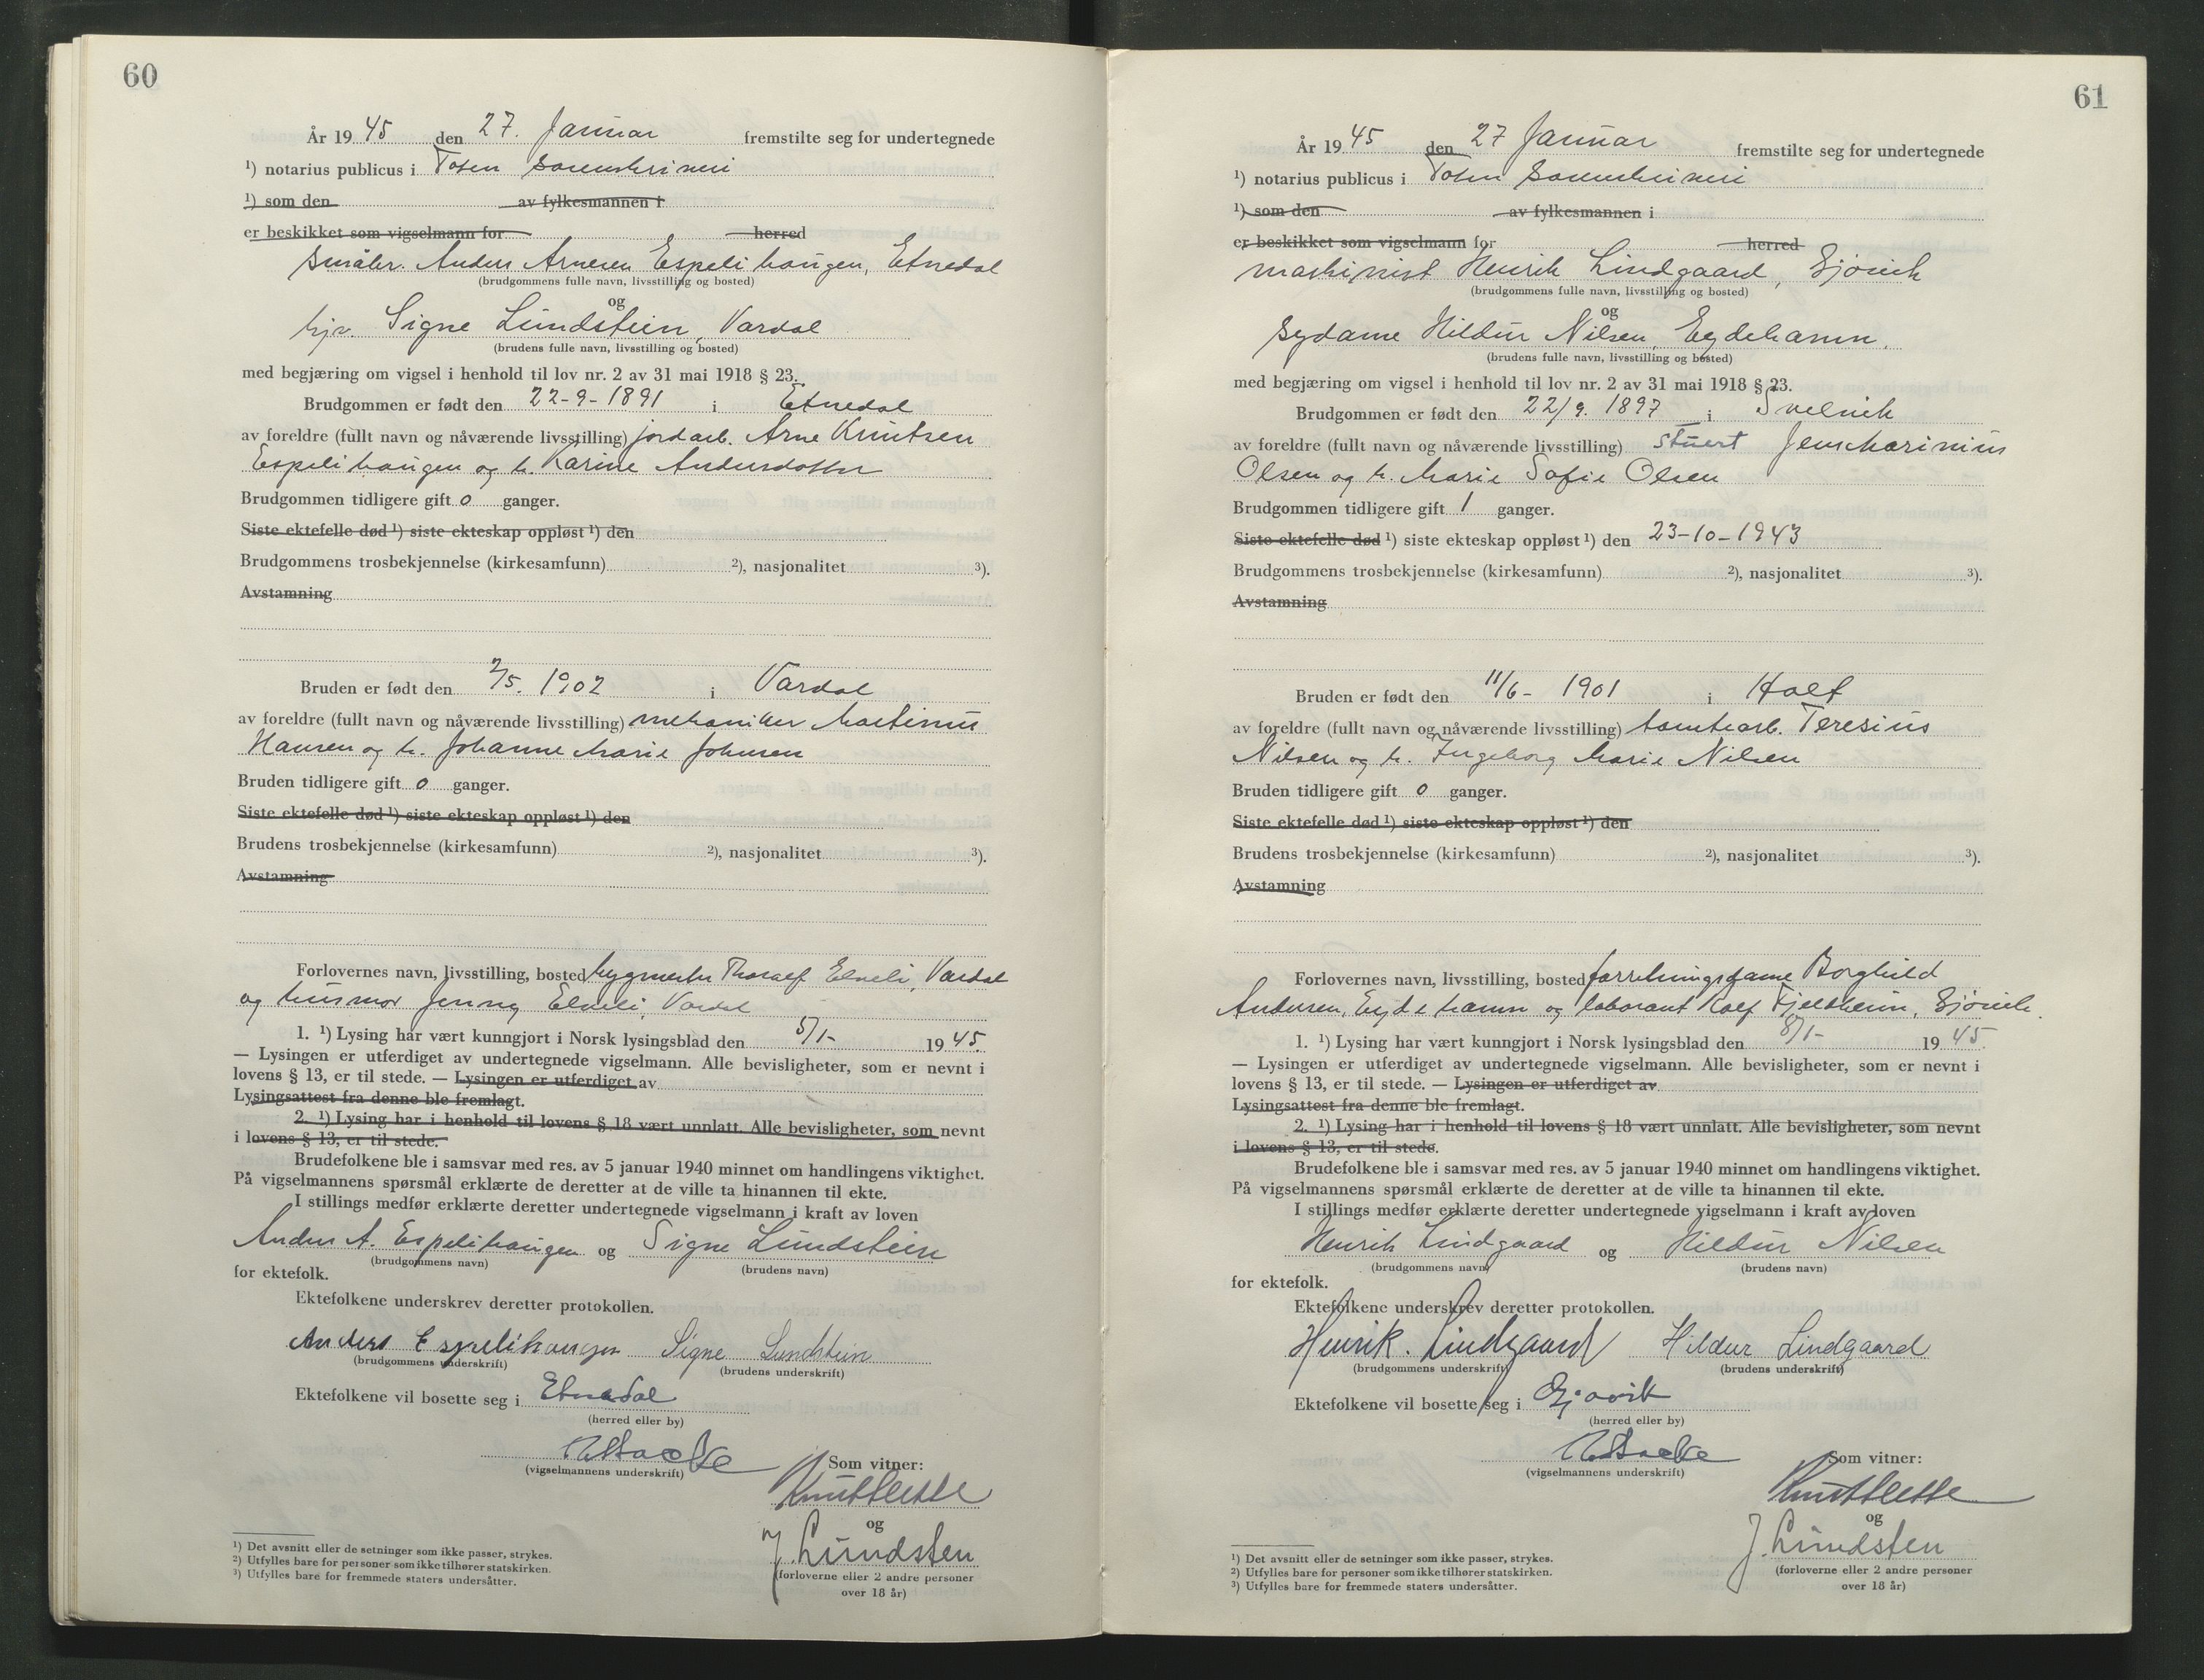 60
År 19 45 den 27. Januar fremstilte seg for undertegnede
¹) notarius publicus i Toten Sorenskriveri
¹) som den av fylkesmannen i
er beskikket som vigselmann for herred
Småbr. Anders Arnesen Espelihaugen, Etnedal
(brudgommens fulle navn, livsstilling og bosted)
og
hjv. Signe Lundstein, Vardal
(brudens fulle navn, livsstilling og bosted)
med begjæring om vigsel i henhold til lov nr. 2 av 31 mai 1918 § 23.
Brudgommen er født den 22-9-1891 i Etnedal
av foreldre (fullt navn og nåværende livsstilling) jordarb. Arne Knutsen
Espelihaugen og h. Karine Andersdotter
Brudgommen tidligere gift 0 ganger.
Siste ektefelle død ¹) siste ekteskap oppløst ¹) den
Brudgommens trosbekjennelse (kirkesamfunn) ²), nasjonalitet ³).
Avstamning
Bruden er født den 2/5. 1902 i Vardal
av foreldre (fullt navn og nåværende livsstilling) mekaniker Martinus
Hansen og h. Johanne Marie Johnsen
Bruden tidligere gift 0 ganger.
Siste ektefelle død ¹) siste ekteskap oppløst ¹) den
Brudens trosbekjennelse (kirkesamfunn) ²), nasjonalitet ³).
Avstamning
Forlovernes navn, livsstilling, bosted byggmester Thoralf Elveli, Vardal
og husmor Jenny Elveli, Vardal
1. ¹) Lysing har vært kunngjort i Norsk lysingsblad den 5/1- 19 45.
— Lysingen er utferdiget av undertegnede vigselmann. Alle bevisligheter, som er nevnt i
lovens § 13, er til stede. — Lysingen er utferdiget av
Lysingsattest fra denne ble fremlagt.
2. ¹) Lysing har i henhold til lovens § 18 vært unnlatt. Alle bevisligheter, som nevnt
i lovens § 13, er til stede.
Brudefolkene ble i samsvar med res. av 5 januar 1940 minnet om handlingens viktighet.
På vigselmannens spørsmål erklærte de deretter at de ville ta hinannen til ekte.
I stillings medfør erklærte deretter undertegnede vigselmann i kraft av loven
Anders A. Espelihaugen og Signe Lundstein
(brudgommens navn) (brudens navn)
for ektefolk.
Ektefolkene underskrev deretter protokollen.
Anders Espelihaugen Signe Lundstein
(brudgommens underskrift) (brudens underskrift)
Ektefolkene vil bosette seg i Etnedal
(herred eller by)
(vigselmannens underskrift) Som vitner:
og
J. Lundsten
(forloverne eller 2 andre personer
over 18 år)
¹) Det avsnitt eller de setninger som ikke passer, strykes.
²) Utfylles bare for personer som ikke tilhører statskirken.
³) Utfylles bare for fremmede staters undersåtter.
61
År 19 45 den 27 Januar fremstilte seg for undertegnede
¹) notarius publicus i Toten Sorenskriveri
¹) som den av fylkesmannen i
er beskikket som vigselmann for herred
maskinist Henrik Lindgaard, Gjøvik
(brudgommens fulle navn, livsstilling og bosted)
og
sydame Hildur Nilsen, Eydehamn.
(brudens fulle navn, livsstilling og bosted)
med begjæring om vigsel i henhold til lov nr. 2 av 31 mai 1918 § 23.
Brudgommen er født den 22/9. 1897 i Svelvik
av foreldre (fullt navn og nåværende livsstilling) stuert Jens Marinius
Olsen og h. Marie Sofie Olsen
Brudgommen tidligere gift 1 ganger.
Siste ektefelle død ¹) siste ekteskap oppløst ¹) den 23-10-1943
Brudgommens trosbekjennelse (kirkesamfunn) ²), nasjonalitet ³).
Avstamning
Bruden er født den 11/6- 1901 i Holt
av foreldre (fullt navn og nåværende livsstilling) tomtearb. Teresius
Nilsen og h. Ingeborg Marie Nilsen
Bruden tidligere gift 0 ganger.
Siste ektefelle død ¹) siste ekteskap oppløst ¹) den
Brudens trosbekjennelse (kirkesamfunn) ²), nasjonalitet ³).
Avstamning
Forlovernes navn, livsstilling, bosted forretningsdame Borghild
Andersen, Eydehamn og laborant Rolf Fjeldheim, Gjøvik.
1. ¹) Lysing har vært kunngjort i Norsk lysingsblad den 8/1- 19 45.
— Lysingen er utferdiget av undertegnede vigselmann. Alle bevisligheter, som er nevnt i
lovens § 13, er til stede. — Lysingen er utferdiget av
Lysingsattest fra denne ble fremlagt.
2. ¹) Lysing har i henhold til lovens § 18 vært unnlatt. Alle bevisligheter, som nevnt
i lovens § 13, er til stede.
Brudefolkene ble i samsvar med res. av 5 januar 1940 minnet om handlingens viktighet.
På vigselmannens spørsmål erklærte de deretter at de ville ta hinannen til ekte.
I stillings medfør erklærte deretter undertegnede vigselmann i kraft av loven
Henrik Lindgaard og Hildur Nilsen
(brudgommens navn) (brudens navn)
for ektefolk.
Ektefolkene underskrev deretter protokollen.
Henrik. Lindgaard Hildur Lindgaard
(brudgommens underskrift) (brudens underskrift)
Ektefolkene vil bosette seg i Gjøvik
(herred eller by)
(vigselmannens underskrift) Som vitner:
og
J. Lundsten
(forloverne eller 2 andre personer
over 18 år)
¹) Det avsnitt eller de setninger som ikke passer, strykes.
²) Utfylles bare for personer som ikke tilhører statskirken.
³) Utfylles bare for fremmede staters undersåtter.